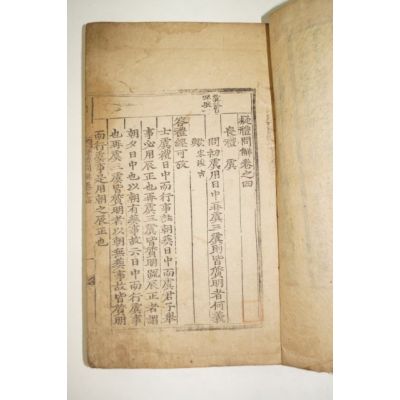 疑禮問解卷之四
喪禮 虞
問初虞用日中再虞三虞則皆質明者何義
宋浚吉
答禮經可攷
士虞禮日中而行事註朝葬日中而虞君子舉
事必用辰正也再虞三虞皆質明疏辰正者謂
朝夕日中也以朝有葬事故云日中而行虞事
也再虞三虞皆質明者以朝無葬事故皆質明
而行虞事是用朝之辰正也